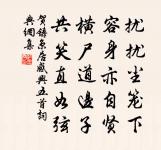 扰扰尘笼下
容身亦自贤
横尸道边子
共笑直如弦
贺铸京居感兴五首词
典网集